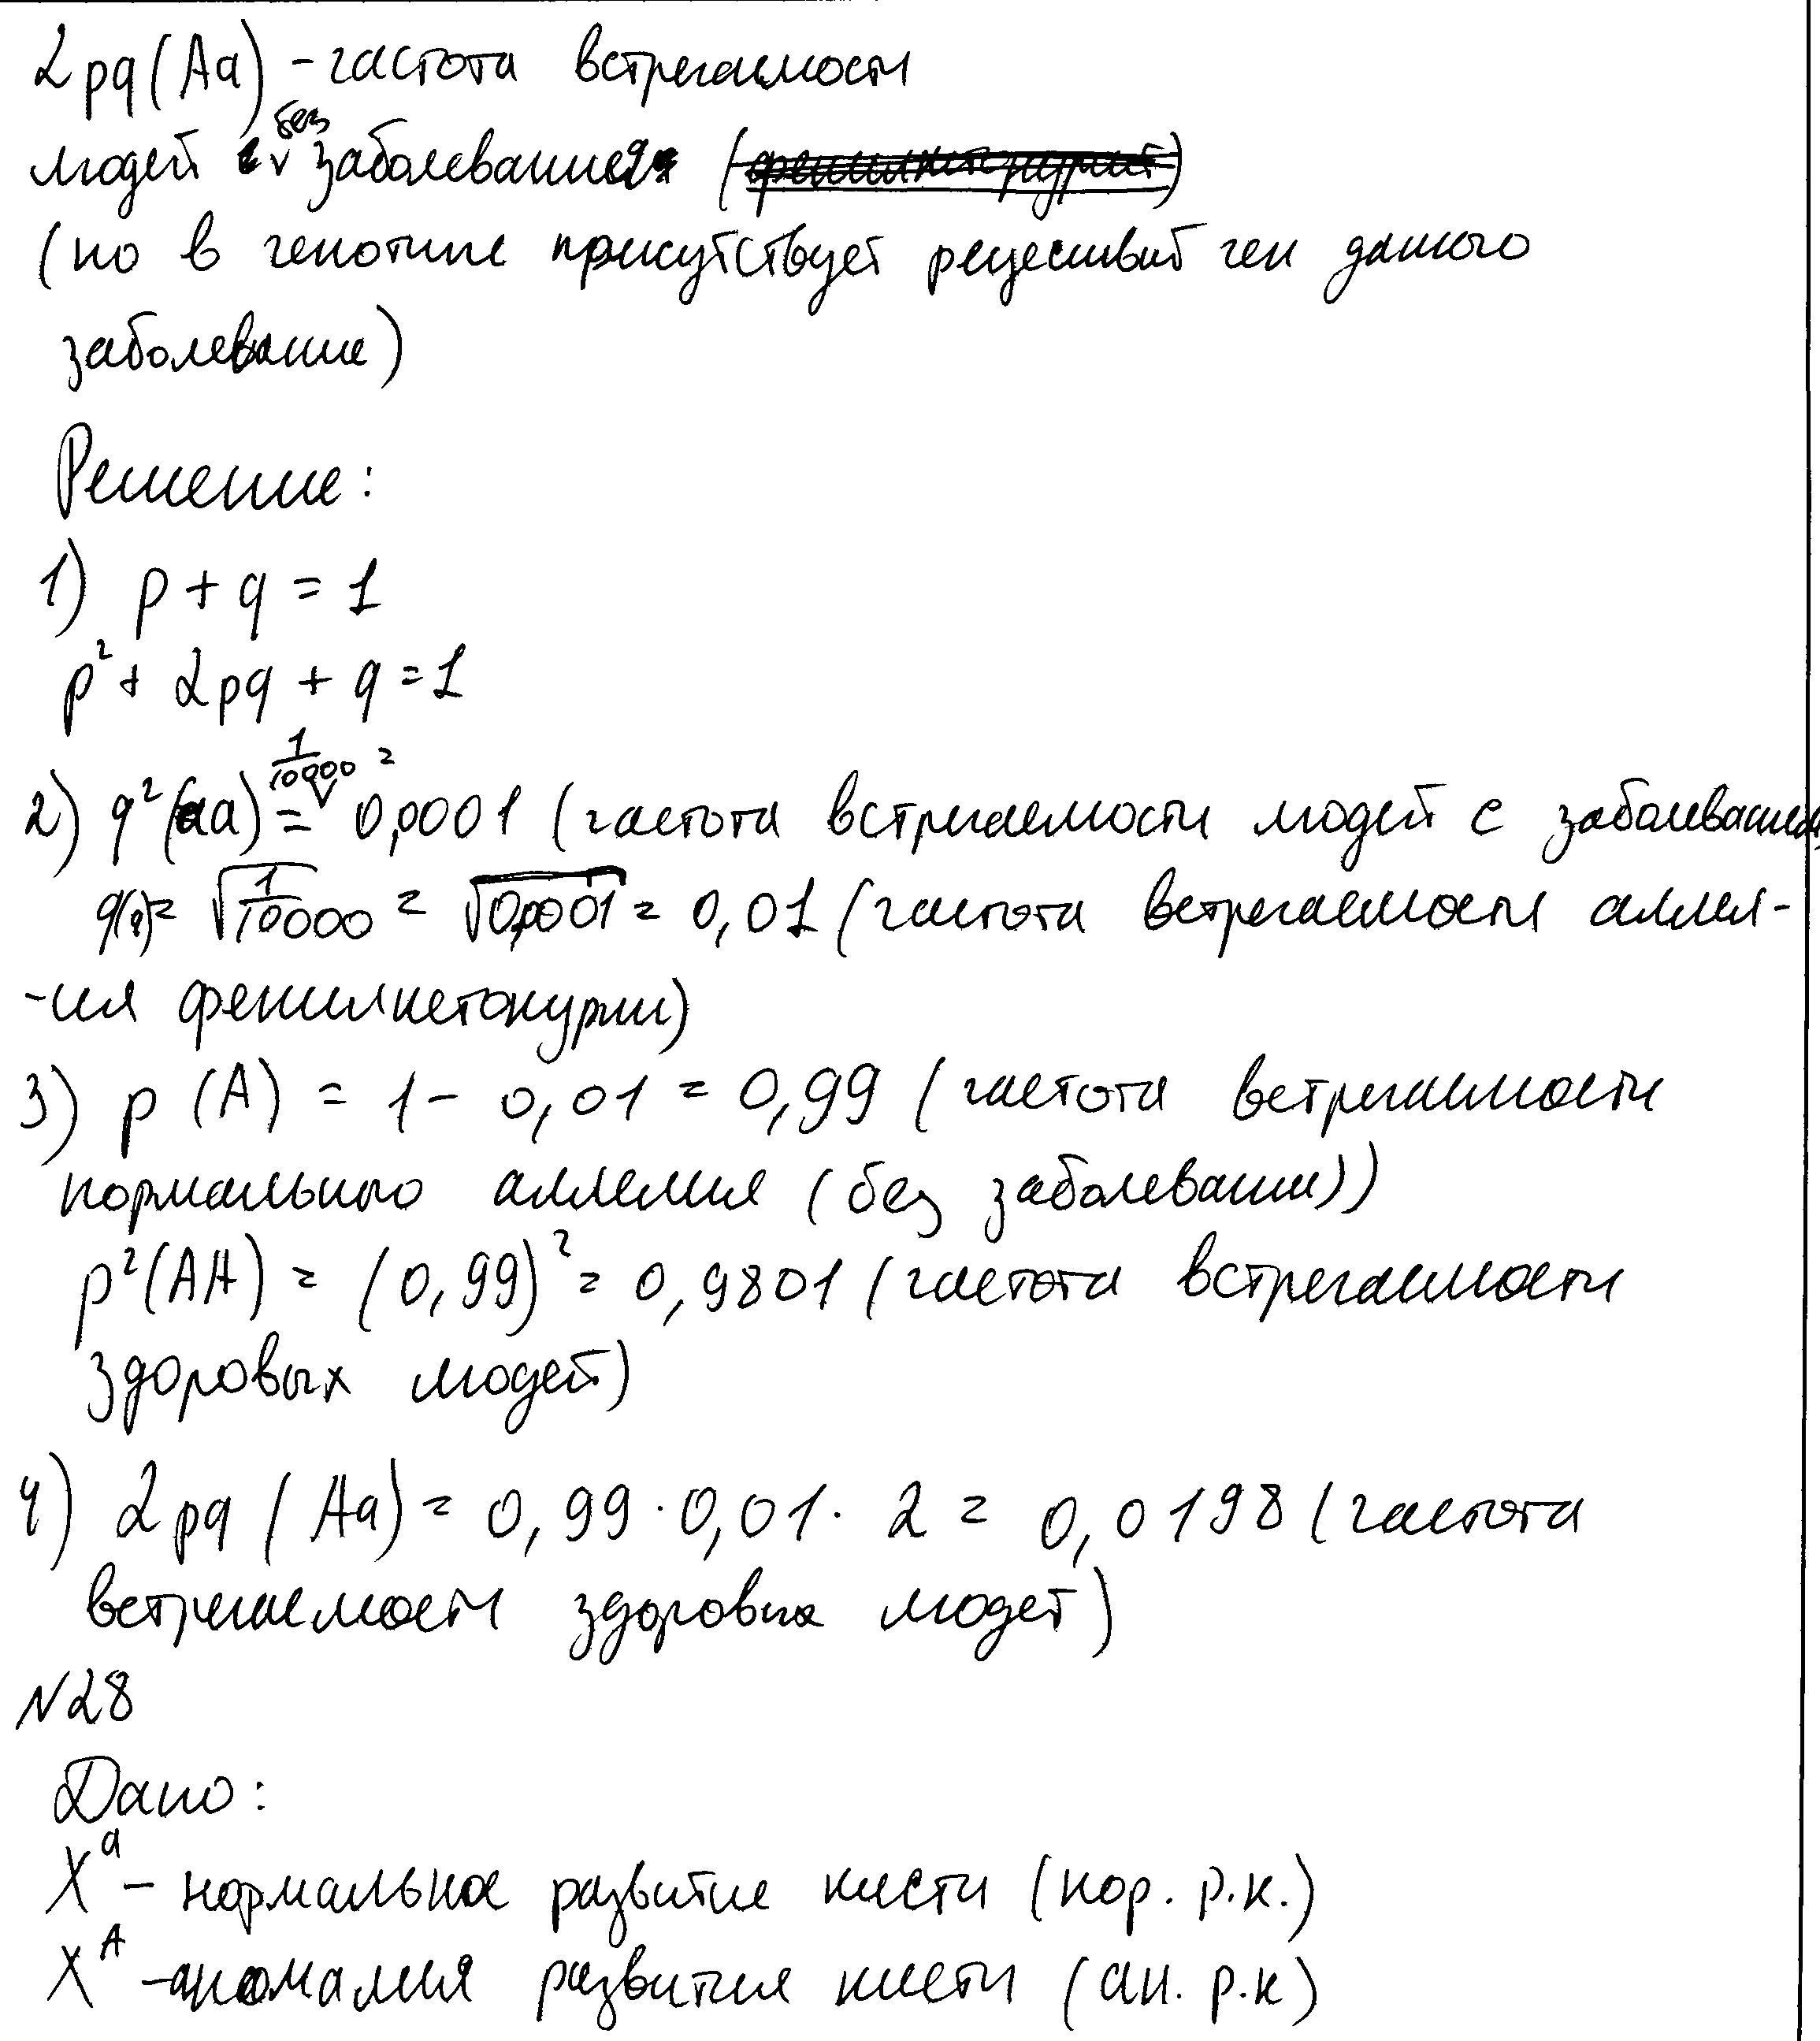 2pq(Aa) - частота встречаемости
людей без заболевания
(но в генотипе присутствует рецессивный ген данного
заболевание)
Решение:
1) p + q = 1
p² + 2pq + q = 1
2) q²(aa) = 1/10000 = 0,0001 (частота встречаемости людей с заболеванием)
q(a) = √1/10000 = √0,0001 = 0,01 (частота встречаемости аллел-
-ля фенилкетонурии)
3) p (A) = 1 - 0,01 = 0,99 (частота встречаемости
нормального аллеля (без заболевания))
p²(AA) = (0,99)² = 0,9801 (частота встречаемости
здоровых людей)
4) 2pq (Aa) = 0,99 · 0,01 · 2 = 0,0198 (частота
встречаемости здоровых людей)
N28
Дано:
Xᵃ - нормальное развитие кисти (нор. р.к.)
Xᴬ - аномалия развития кисти (ан. р.к)